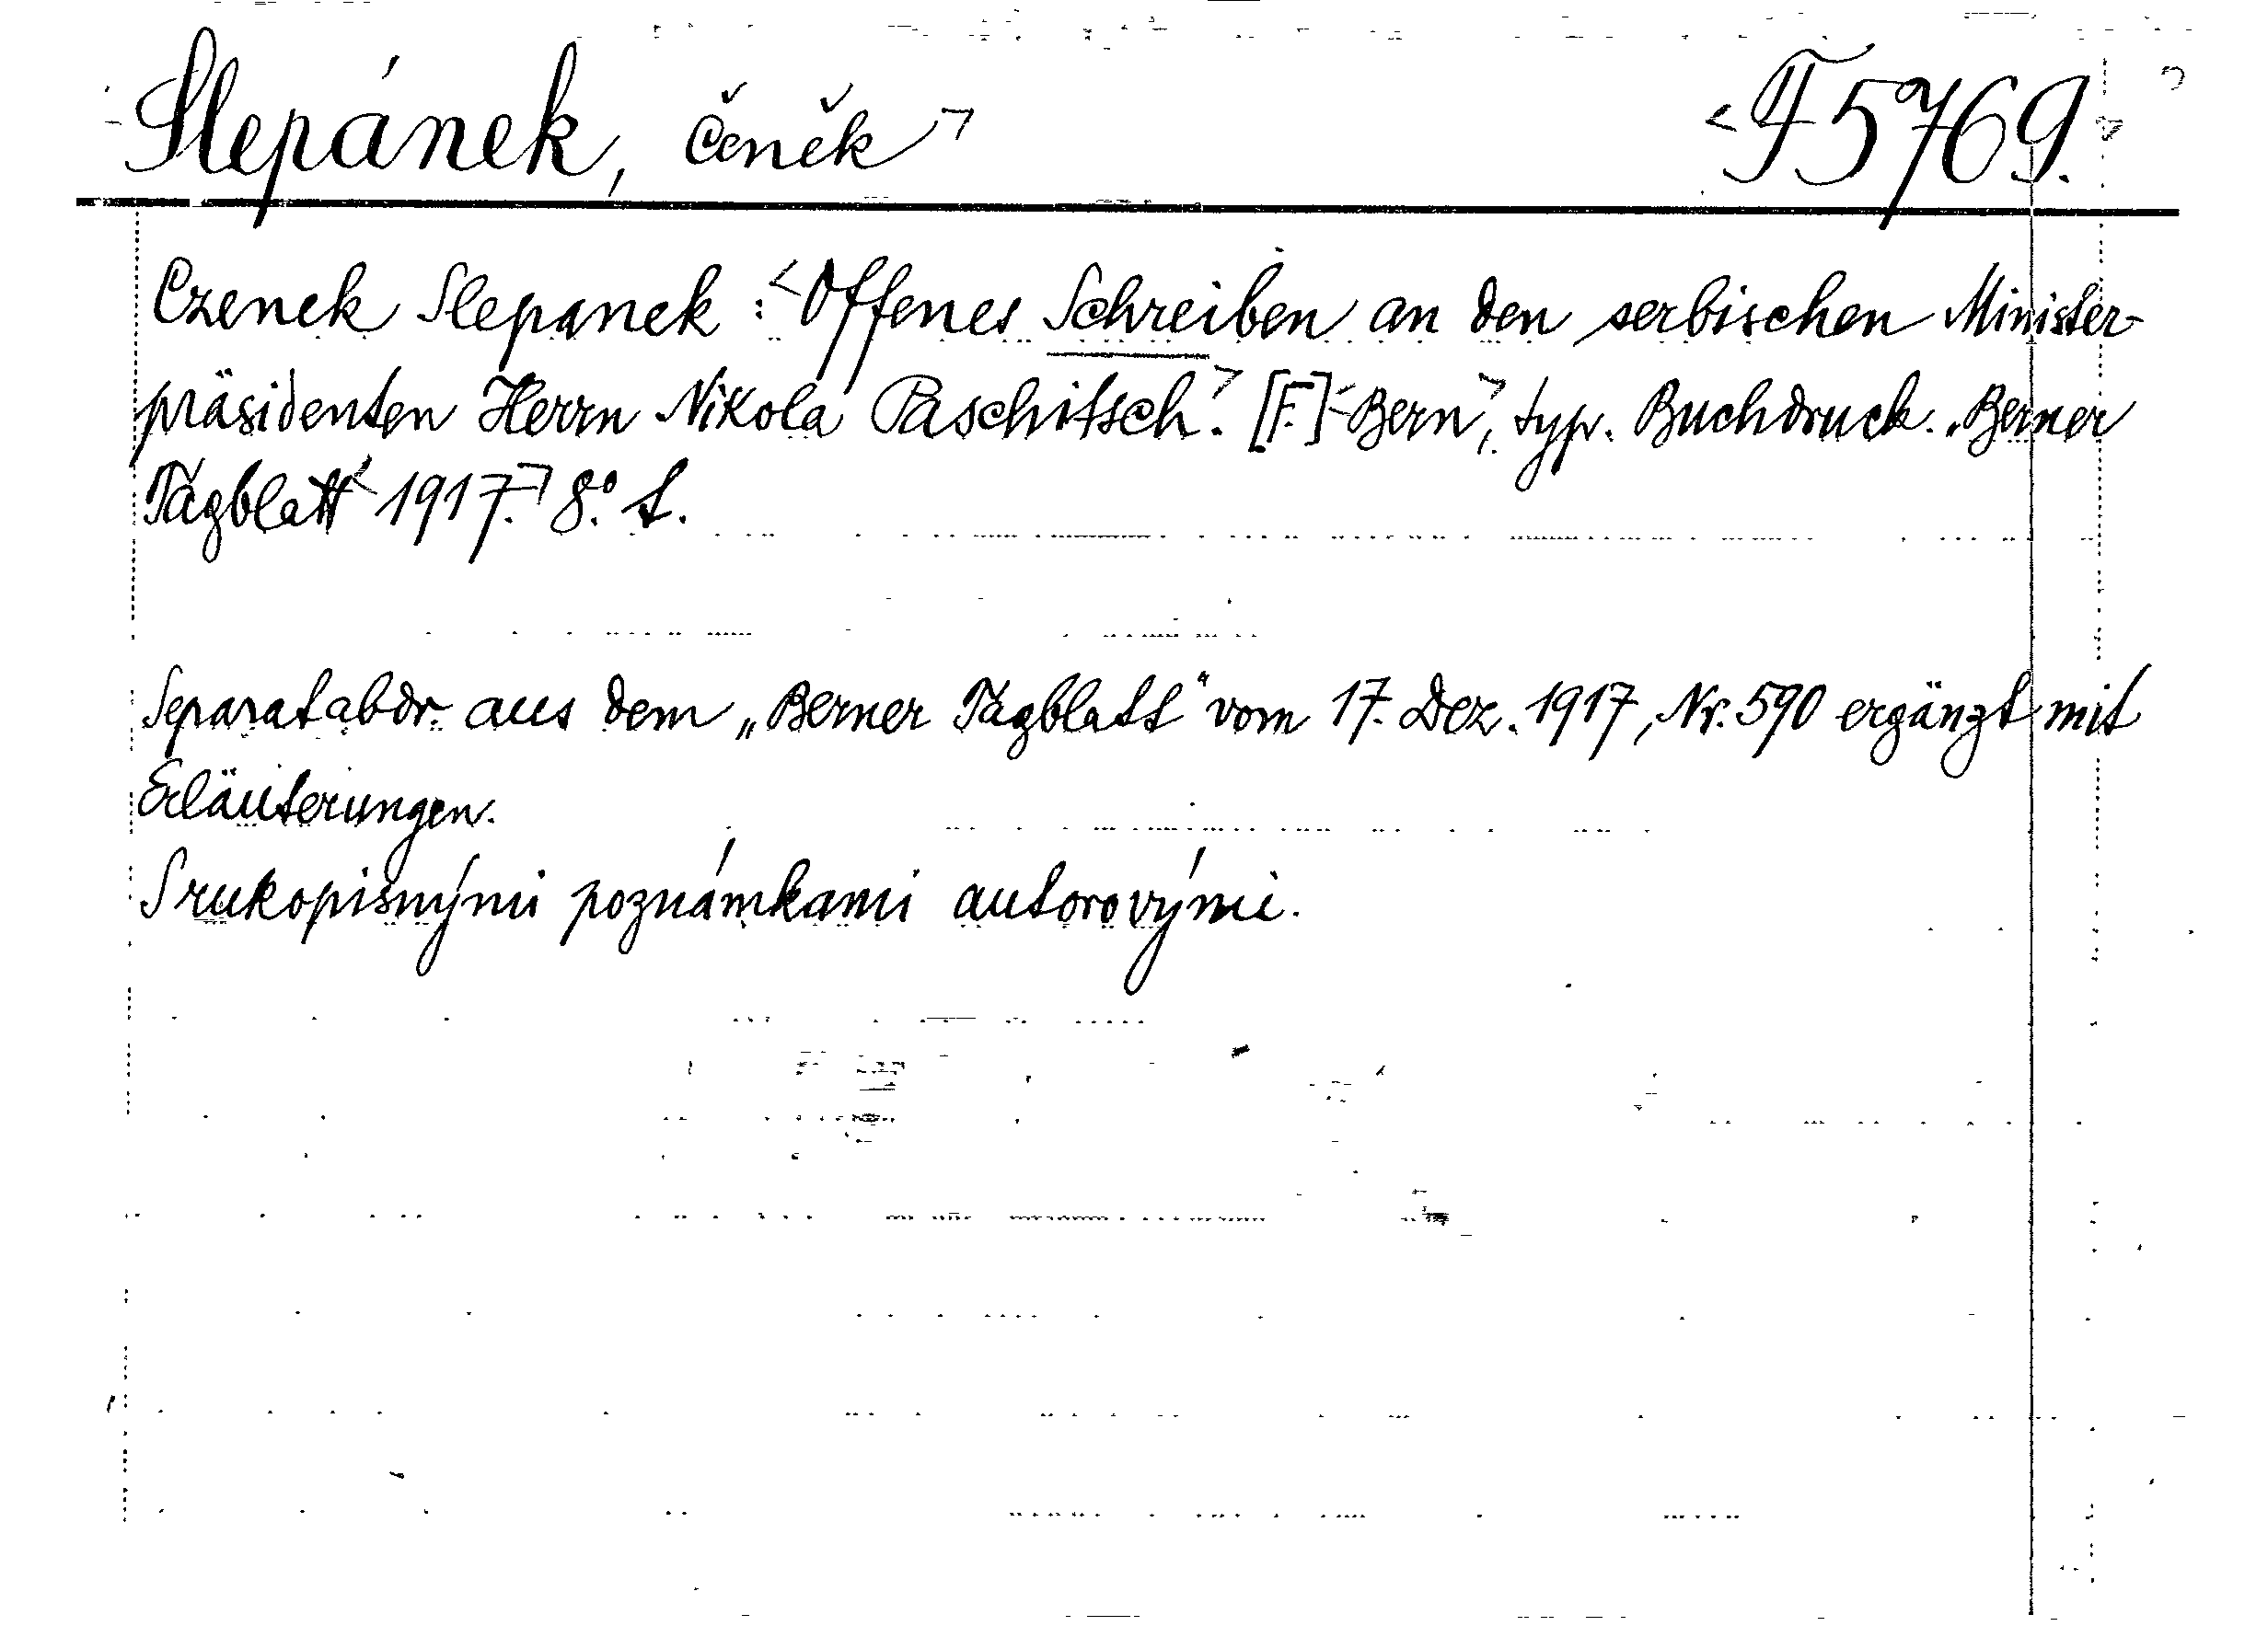 Slepánek, Čeněk > < Tf 5769.
Czenek Slepanek : < Offenes Schreiben an den serbischen Minister-
präsidenten Herrn Nikola Paschitsch. > [F.] < Bern >, typ. Buchdruck. „Berner
Tagblatt" < 1917. > 8.° t.
Separatabdr. aus dem „Berner Tagblatt" vom 17. Dez. 1917, Nr. 590 ergänzt mit
Erläuterungen.
S rukopisnými poznámkami autorovými.